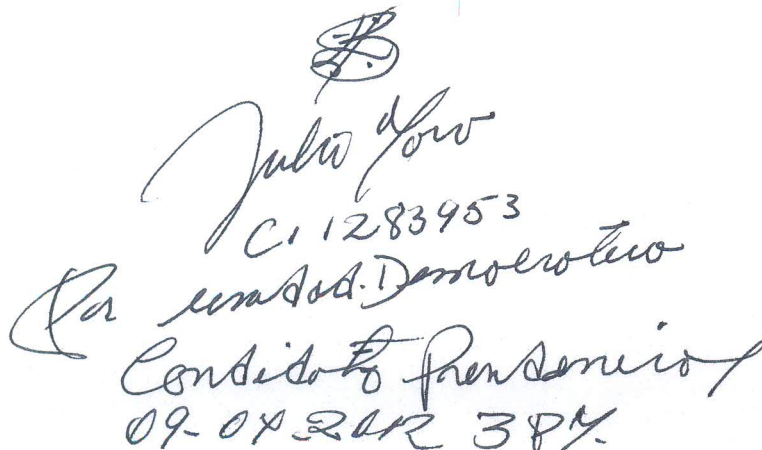 Julio Yoro
C.I 1283953
Por unidad.Democratico
Candidato Presidencial
09-04-2012 3PM.